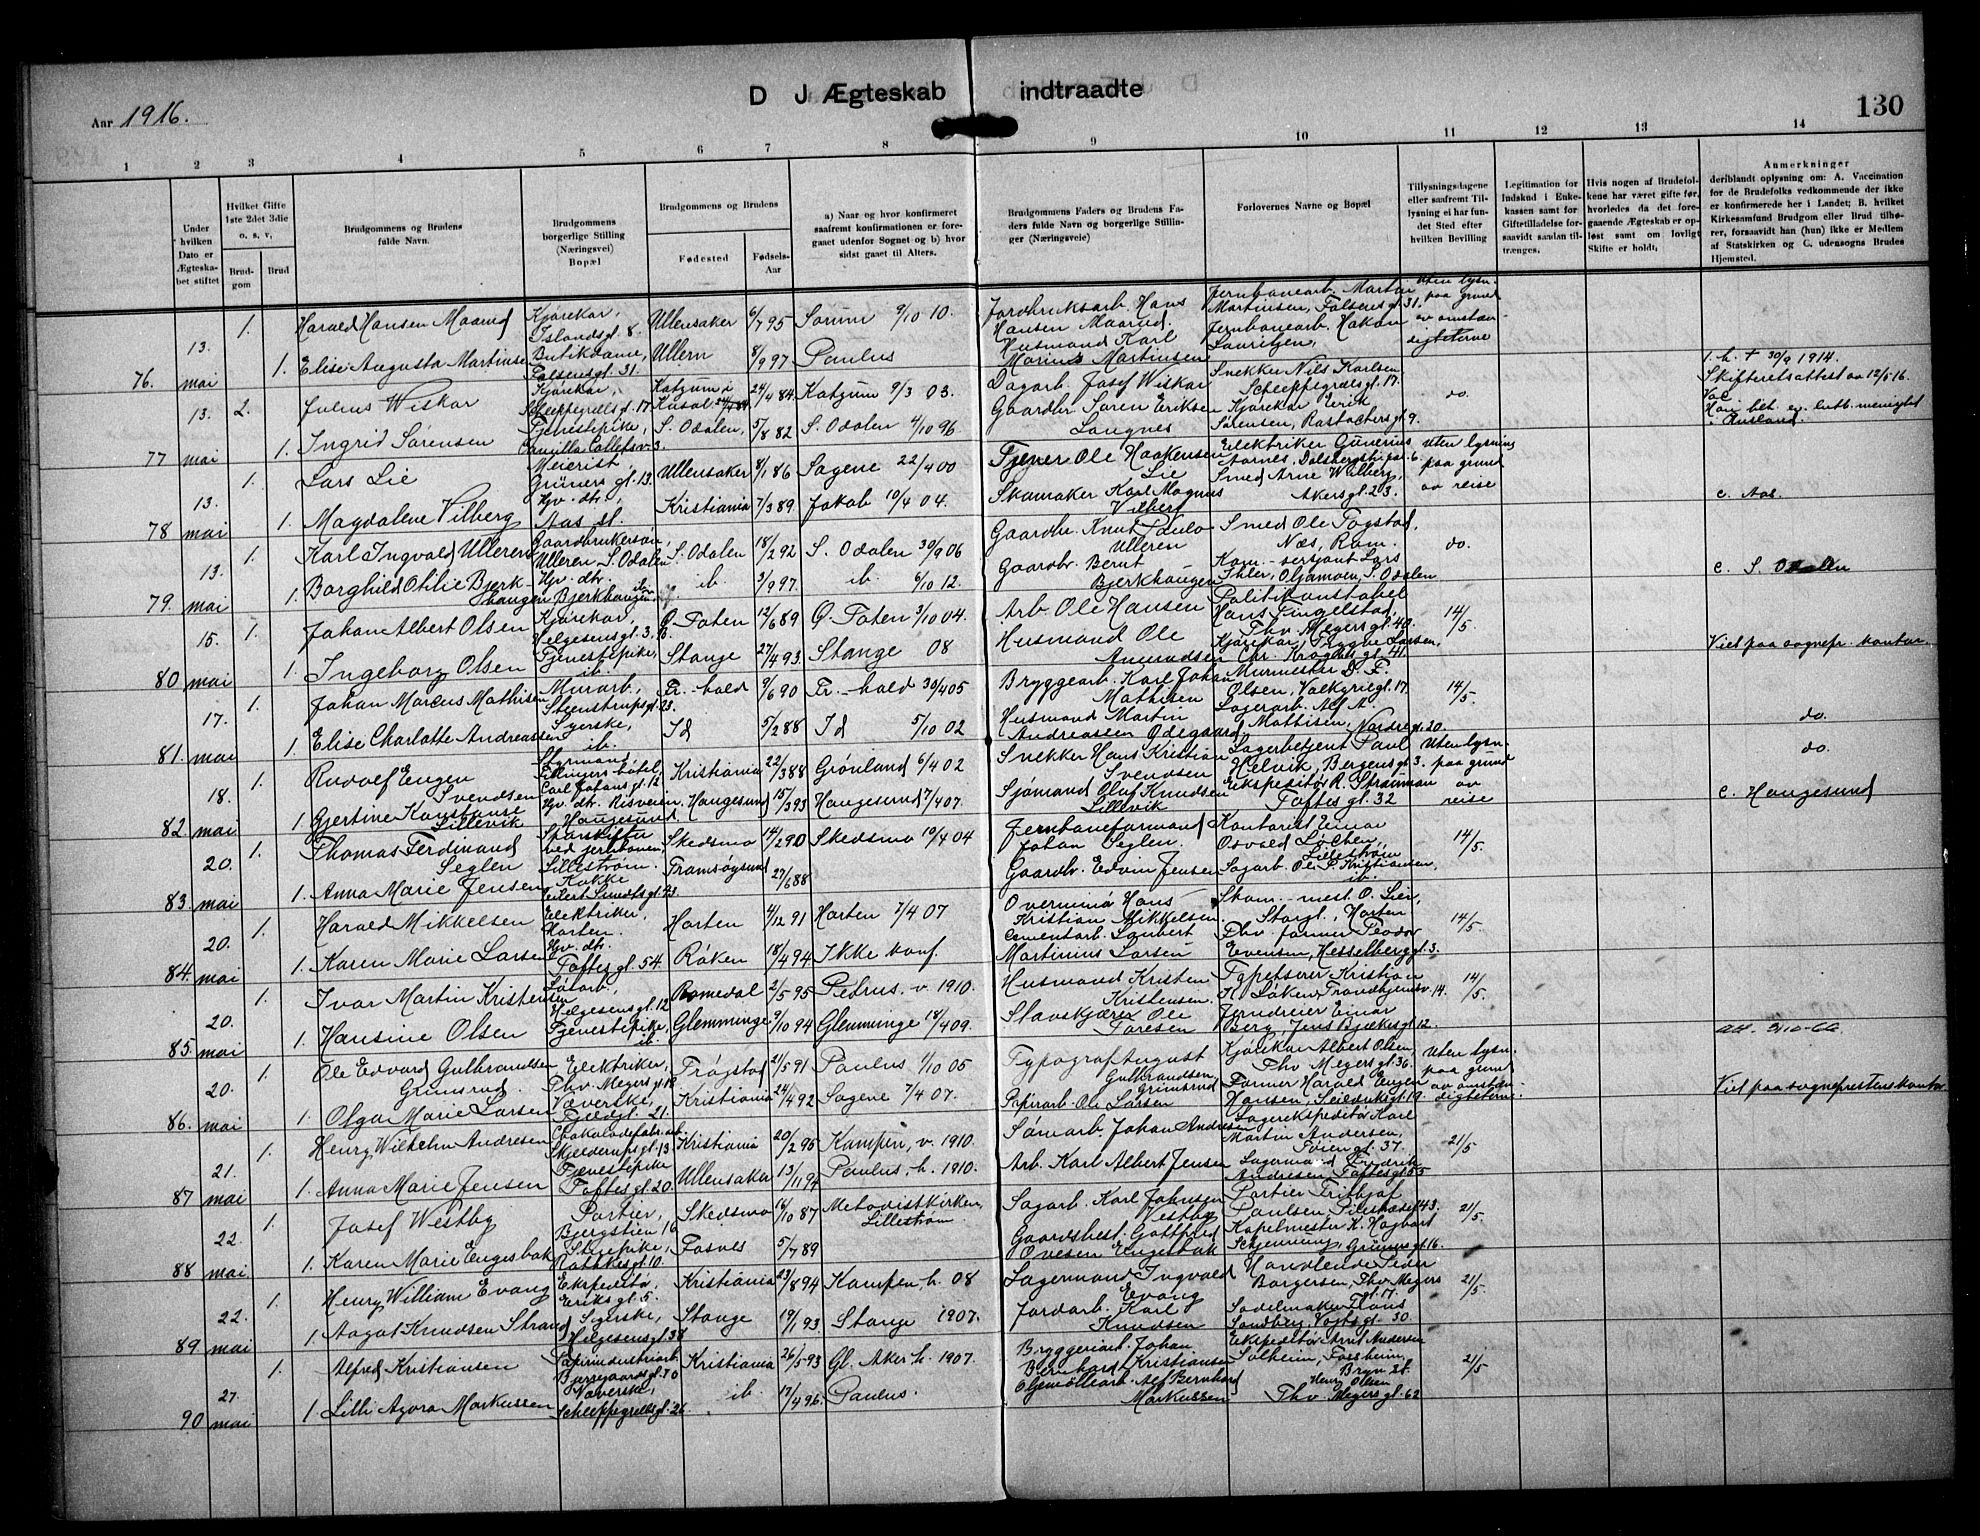 D J Ægteskab indtraadte
Aar 1916.
130
1 2 3 4 5 6 7 8 9 10 11 12 13 14
Under hvilken Dato er Ægteskabet stiftet
Hvilket Gifte 1ste 2det 3die o. s. v,
Brudgom
Brud
Brudgommens og Brudens fulde Navn.
Brudgommens borgerlige Stilling (Næringsvei) Bopæl
Brudgommens og Brudens
Fødested
Fødsels-Aar
a) Naar og hvor konfirmeret saafremt konfirmationen er foregaaet udenfor Sognet og b) hvor sidst gaaet til Alters.
Brudgommens Faders og Brudens Faders fulde Navn og borgerlige Stillinger (Næringsveie)
Forlovernes Navne og Bopæl
Tillysningsdagene eller saafremt Tillysning ei har fundet Sted efter hvilken Bevilling
Legitimation for Indskud i Enkekassen samt for Giftetilladelse forsaavidt saadan tiltrænges.
Hvis nogen af Brudefolkene har været gifte før, hvorledes da det foregaaende Ægteskab er opløst samt om lovligt Skifte er holdt,
Anmerkninger deriblandt oplysning om: A. Vaccination for de Brudefolks vedkommende der ikke er konfirmerede her i Landet; B. hvilket Kirkesamfund Brudgom eller Brud tilhører, forsaavidt han (hun) ikke er Medlem af Statskirken og C. udensogns Brudes Hjemsted.
76. 13. mai 1. Harald Hansen Maarud Kjørekar, Islandsgt. 8. Ullensaker 6/7 95 Sørum 9/10 10. Jordbruksarb. Hans Hansen Maarud. Jernbanearb. Martin Martinsen, Falsensgt. 31. Uten lysn. paa grund av omstændigheterne
1. Elise Augusta Martinsen Butikdame, Falsensgt. 31. Ullern 8/9 97 Paulus Husmand Karl Marius Martinsen Jernbanearb. Hakon Lauritzen,
77 13. mai 2. Julius Wiskar Kjørekar, Schleppegrellsgt. 17 24/4 84 Katzum 9/3 03. Dagarb. Josef Wiskar Snekker Nils Karlsen Schleppegrellsgt. 17. do. 1. h. + 30/9 1914. Skifteretsattest av 12/5 16.
1. Ingrid Sørensen Tjenestepike, Camilla Colletsv. 3. S. Odalen, 5/8 82 S. Odalen 4/10 96 Gaardbr. Søren Eriksen Langnes Kjørekar Erik Sørensen, Rostockersgt. 9.
78 13. mai 1. Lars Lie Meierist Grünersgt. 13. Ullensaker 8/1 86 Sagene 22/4 00 Tjener Ole Haakensen Lie Elektriker Gunerius Aarnes, Uten lysning paa grund av reise
1. Magdalene Vilberg Hjv. dtr., Aas st. Kristiania 7/3 89. Jakob 10/4 04. Skomaker Karl Magnus Vilberg Smed Arne Wilberg, Akersgt. 23. c. Aas.
79. 13. mai 1. Karl Ingvald Ulleren Gaardbrukersøn, Ulleren S. Odalen S. Odalen 18/2 92 S. Odalen 30/9 06 Gaardbr. Knut Paulo Ulleren Smed Ole Fogstad, Næs, Rom. do.
1. Borghild Otilie Bjerkhaugen Hjv. dtr. Bjerkhaugen, ib. ib. 3/9 97. ib. 6/10 12. Gaardbr. Bernt Bjerkhaugen Kom.-sersjant Lars Ihler, Oljamoen, S. Odalen c. S. Odalen
80 15. mai 1. Johan Albert Olsen Kjørekar, Helgesensgt. 3, Ø. Toten 12/6 89 Ø. Toten 3/10 04. Arb. Ole Hansen Politikonstabel Hans Fingelstad, Thv. Meyersgt. 40. 14/5.
1. Ingeborg Olsen Tjenestepike, ib. Stange 27/4 93. Stange 08 Husmand Ole Amundsen Kjørekar, Trygve Larsen, Chr. Kroghsgt. 41. Viet paa sognepr. kontor
81 17. mai 1. Johan Marcus Mathisen Murarb., Steenstrupsgt. 23. Fr.-hald 9/6 90 Fr.-hald 30/4 05 Bryggearb. Karl Johan Mathisen Murmester D. F. Olsen, Valkyriegt. 17. 14/5.
1. Elise Charlotte Andreassen Syerske, ib. Id 5/2 88 Id 5/10 02 Husmand Martin Andreassen Ødegaard, Lagerarb. Alf A. Mathisen, Nordregt. 20. do.
82 18. mai 1. Rudolf Engen Svendsen Styrmand, Carl Johansgt. 12 Kristiania 22/3 88 Grønland 6/4 02 Snekker Hans Kristian Svendsen Lagerbetjent Paul Helvik, Bergensgt. 3. Uten lysn. paa grund av reise do.
1. Gjertine Konstanse Lillevik Hjv. dtr. Risveien, Haugesund Haugesund 15/3 93 Haugesund 7/4 07. Sjømand Oluf Knudsen Lillevik Ekspeditør R. Strømman Toftesgt. 32 c. Haugesund
83. 20. mai 1. Thomas Ferdinand Seglen Stenskifter ved jernbanen Lillestrøm. Skedsmo 14/2 90 Skedsmo 10/4 04 Jernbaneformand Johan Seglen. Kontorist Einar Odvald Løchen, Lillestrøm 14/5.
1. Anna Marie Jensen Kokke Eilert Sundtsgt. 23. Tromsøysund 27/6 88 Gaardbr. Edvin Jensen Sagarb. Ole P. Kristiansen, ib.
84. 20. mai 1. Harald Mikkelsen Elektriker, Horten. Horten 4/12 91 Horten 7/4 07 Overminør Hans Kristian Mikkelsen. Skom.-mest. O. Lier, Storgt., Horten 14/5.
1. Karen Marie Larsen Hjv. dtr. Toftesgt. 54. Røken 18/4 94 Ikke konf. Cementarb. Lambert Martinius Larsen Thv. former Peodor Evensen, Hesselbergsgt. 3.
85. 20. mai 1. Ivar Martin Kristensen Helgesensgt. 12 Romedal 2/5 95 Petrus. v. 1910. Husmand Kristen Kristensen. Tapetserer Kristian K. Løken, Trondhjemsv. 14. 14/5.
1. Hansine Olsen Tjenestepike, ib. Glemminge 9/10 94 Glemminge 18/4 09. Slavskjærer Ole Toresen Jerndreier Einar Berg, Jens Bjelkesgt. 12.
86. 20. mai 1. Ole Edvard Gulbrandsen Grimsrud. Elektriker, Thv. Meyersgt. 18 Trøgstad 21/5 91 Paulus 1/10 05 Typograf August Gulbrandsen Grimsrud Kjørekar Albert Olsen, Thv. Meyersgt. 36. Uten lysn. paa grund av omstændigheterne.
1. Olga Marie Larsen Væverske, Tjeldgt. 21. Kristiania 24/4 92 Sagene 7/4 07. Papirarb. Ole Larsen Former Harald Engen Hansen, Seilduksgt. 19. Viet paa sogneprestens kontor
87 21. mai 1. Henry Wilhelm Andresen Chokoladefabr.arb. Skjelderupsgt. 13 Kristiania 20/2 95 Kampen, v. 1910. Sømarb. Johan Andresen Lagerekspeditør Karl Martin Andersen, Tøiengt. 37. 21/5
1. Anna Marie Jensen Tjenestepike Toftesgt. 20 Ullensaker 13/11 94 Paulus, h. 1910. Arb. Karl Albert Jensen Lagermand Fredrik Andresen Toftesgt. 55
88 22. mai 1. Josef Westby Portier, Bergstien 16 Skedsmo 16/10 87 Metodistkirken, Lillestrøm Sagarb. Karl Johnsen Vestby Portier Fritjof Paulsen, Pilestrædet 43. 21/5
1. Karen Marie Engesbak Stuepike, Rathkesgt. 10. Fosnes 5/7 89 Gaardsbest. Gotfred Ovesen Engesbak Kapelmester K. Hagbart Schjennung, Grünersgt. 16.
89 22. mai 1. Henry William Evang Ekspeditør, Eriksgt. 5. Kristiania 23/8 94 Kampen h. 08 Lagermand Ingvald Evang Handlende Peder Borgersen, Thv. Meyersgt. 17. 21/5.
1. Aagot Knudsen Strand Syerske, Helgesensgt. 38 Stange 19/1 93 Stange 1907. Jordarb. Karl Knudsen Sadelmaker Hans Sandberg, Vogtsgt. 30.
90 27. mai 1. Alfred Kristiansen Papirindustriarb. Bjerregaardsgt. 70 Kristiania 26/5 93 Gl. Aker h. 1907. Bryggeriarb. Johan Bernhard Kristiansen Ekspeditør Arnt Andersen Solheim, Forsheim, Bryn st. 21/5
1. Lilli Agora Markussen Væverske, Schleppegrellsgt. 26 ib. 17/4 96. Paulus. Oljemøllearb. Alf Bernhard Markussen Henry Olsen Thv. Meyersgt. 62